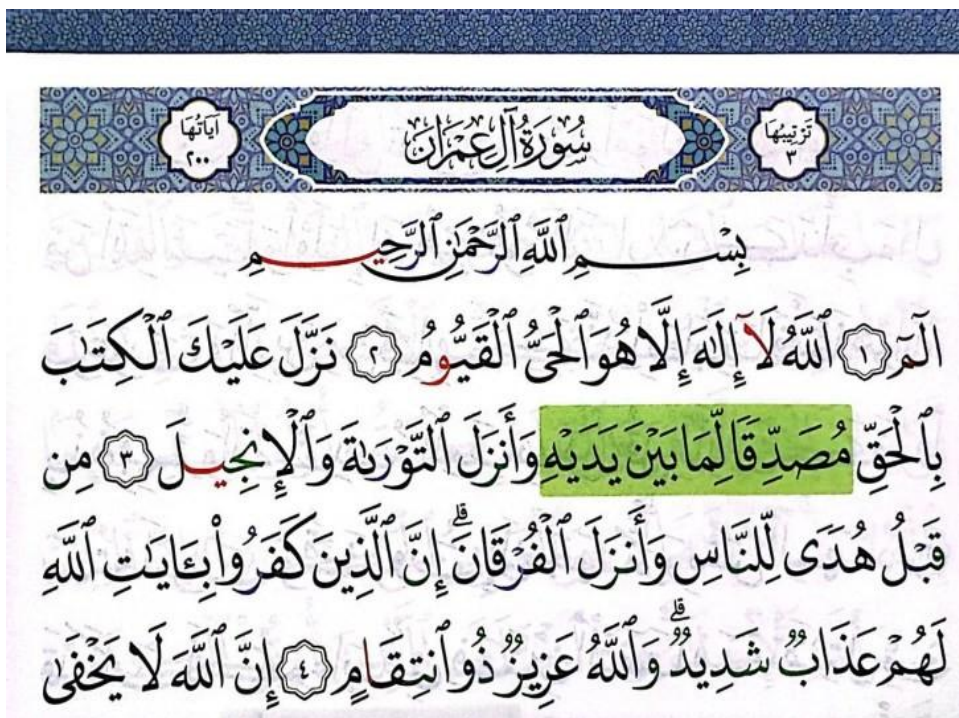 تَرْتِيبُهَا
٣
سُورَةُ آلِ عِمْرَانَ
آيَاتُهَا
٢٠٠
بِسْمِ ٱللَّهِ ٱلرَّحْمَٰنِ ٱلرَّحِيمِ
الٓمٓ ١ ٱللَّهُ لَآ إِلَٰهَ إِلَّا هُوَ ٱلْحَىُّ ٱلْقَيُّومُ ٢ نَزَّلَ عَلَيْكَ ٱلْكِتَٰبَ
بِٱلْحَقِّ مُصَدِّقًا لِّمَا بَيْنَ يَدَيْهِ وَأَنزَلَ ٱلتَّوْرَىٰةَ وَٱلْإِنجِيلَ ٣ مِن
قَبْلُ هُدًى لِّلنَّاسِ وَأَنزَلَ ٱلْفُرْقَانَ ۗ إِنَّ ٱلَّذِينَ كَفَرُوا۟ بِـَٔايَٰتِ ٱللَّهِ
لَهُمْ عَذَابٌ شَدِيدٌ ۗ وَٱللَّهُ عَزِيزٌ ذُو ٱنتِقَامٍ ٤ إِنَّ ٱللَّهَ لَا يَخْفَىٰ